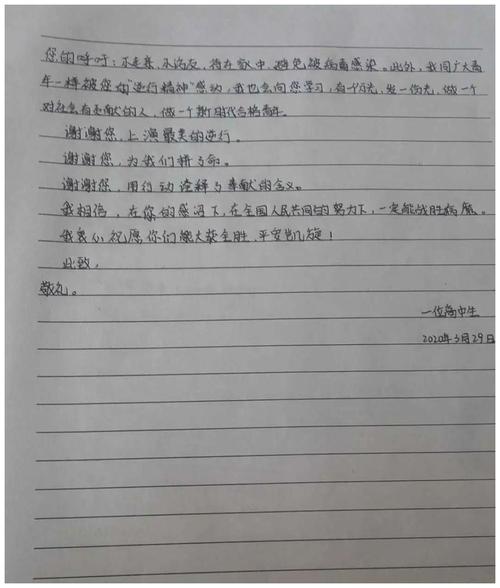 您的呼吁:不走亲,不访友,待在家中,避免被病毒感染。此外,我同广大青
年一样被您的"逆行精神"感动,我也会向您学习,有一分光,发一份光,做一个
对社会有贡献的人,做一个新时代合格青年。
谢谢您,上演最美的逆行。
谢谢您,为我们拼了命。
谢谢您,用行动诠释了奉献的含义。
我相信,在你的感召下,在全国人民共同的努力下,一定能战胜病魔。
我衷心祝愿你们能大获全胜,平安凯旋!
此致,
敬礼。
一位高中生
2020年3月29日